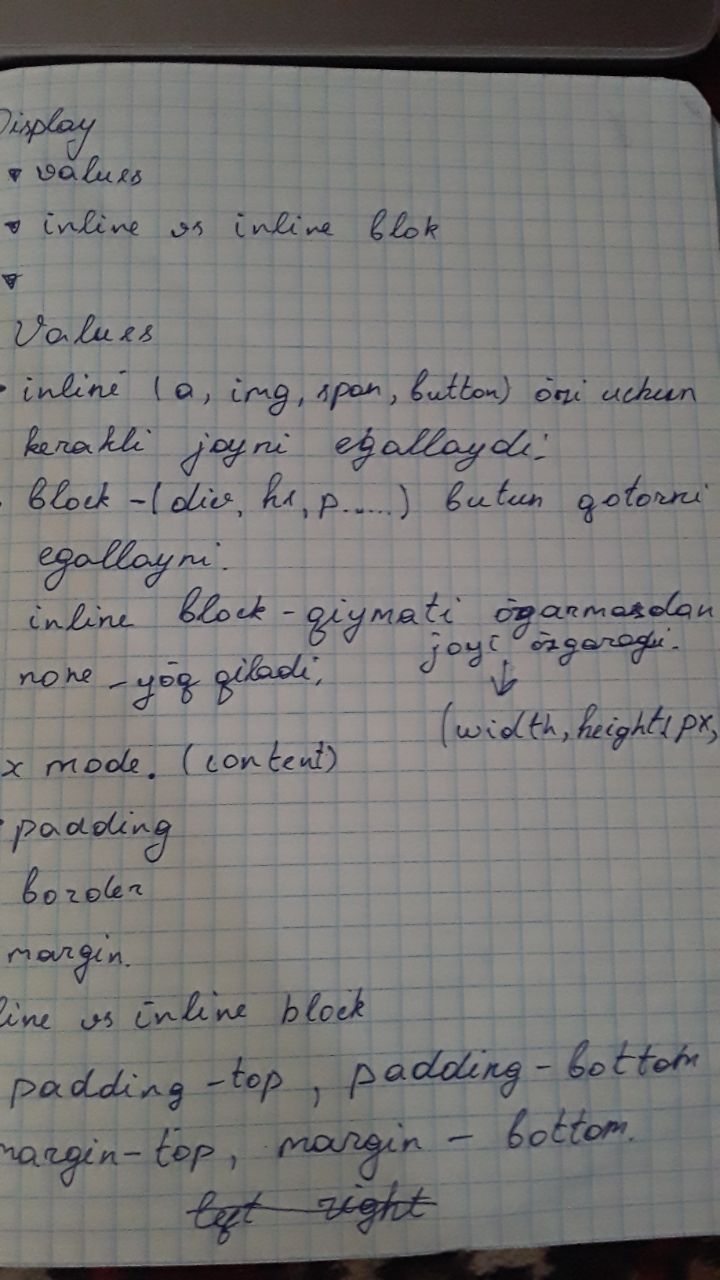 Display
values
inline vs inline blok
Values
inline (a, img, span, button) özi uchun
kerakli joyni egallaydi.
block - (div, h1, p.....) butun qotorni
egallayni.
inline block - qiymati özgarmasdan
joyi özgaradi.
none - yöq qiladi,
(width, height, px,
x mode. (content)
padding
border
margin.
line vs inline block
padding-top, padding-bottom
margin-top, margin-bottom.
left right